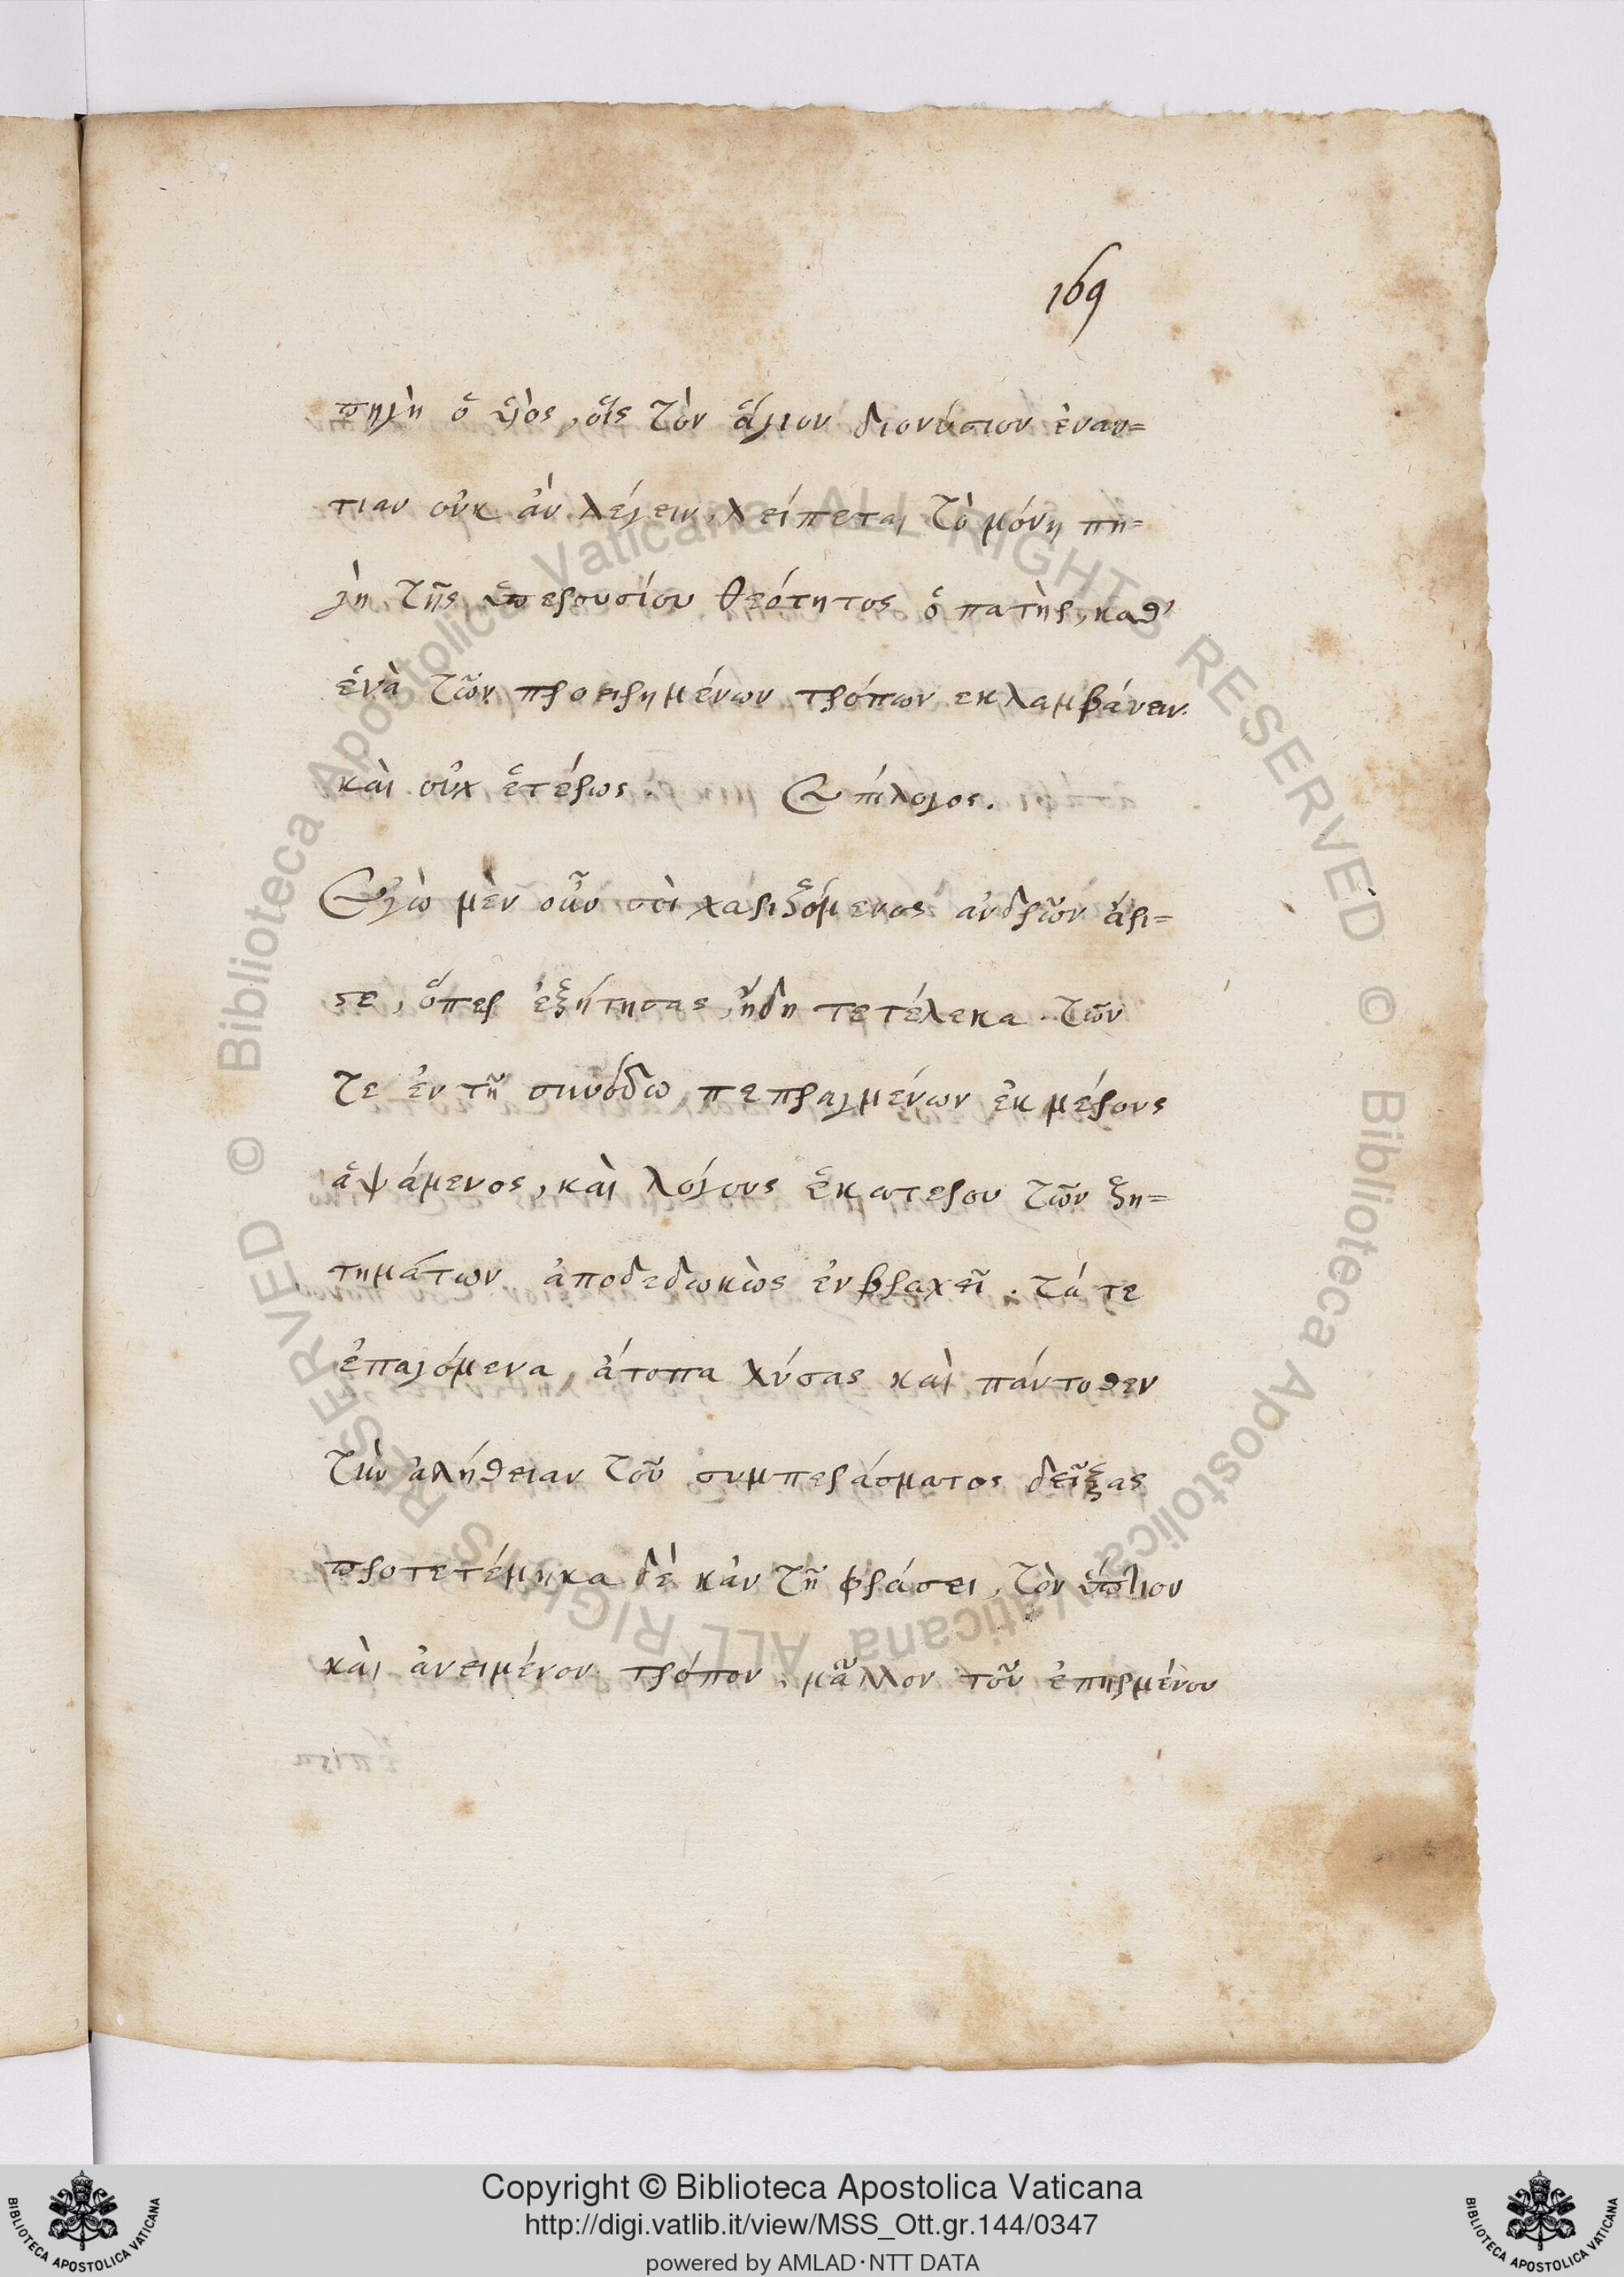 169
πηγὴ ὁ ὑιὸς, οἷς τὸν ἅγιον διονύσιον ἐναν=
τιαν οὐκ ἀν λέγειν, λείπεται τὸ μόνη πη=
γὴ τῆς ὑπερουσίου θεότητος ὁ πατὴρ, καθ'
ἑνὰ τῶν προειρημένων τρόπων εκλαμβάνειν.
καὶ οὐχ ἑτέρως. Επίλογος.
Εγὼ μὲν οὖν σοὶ χαριζόμενος ἀνδρῶν ἀρι=
στε, ὅπερ ἐζήτησας, ἤδη τετέλεκα. τῶν
τε ἐν τῆ συνόδω πεπραγμένων ἐκ μέρους
ἁψάμενος, καὶ λόγους ἑκατερου τῶν ζη=
τημάτων ἀποδεδωκὼς ἐν βραχεῖ. τά τε
ἐπαγόμενα ἄτοπα λύσας καὶ πάντοθεν
τὴν ἀλήθειαν τοῦ συμπεράσματος δεῖξας
προτετίμηκα δὲ κἀν τῆ φράσει, τὸν ὕπτιον
καὶ ἀνειμένον τρόπον, μᾶλλον τοῦ ἐπηρμένου
Copyright © Biblioteca Apostolica Vaticana
http://digi.vatlib.it/view/MSS_Ott.gr.144/0347
powered by AMLAD·NTT DATA
BIBLIOTECA APOSTOLICA VATICANA
BIBLIOTECA APOSTOLICA VATICANA
© Biblioteca Apostolica Vaticana ALL RIGHTS RESERVED
© Biblioteca Apostolica Vaticana ALL RIGHTS RESERVED